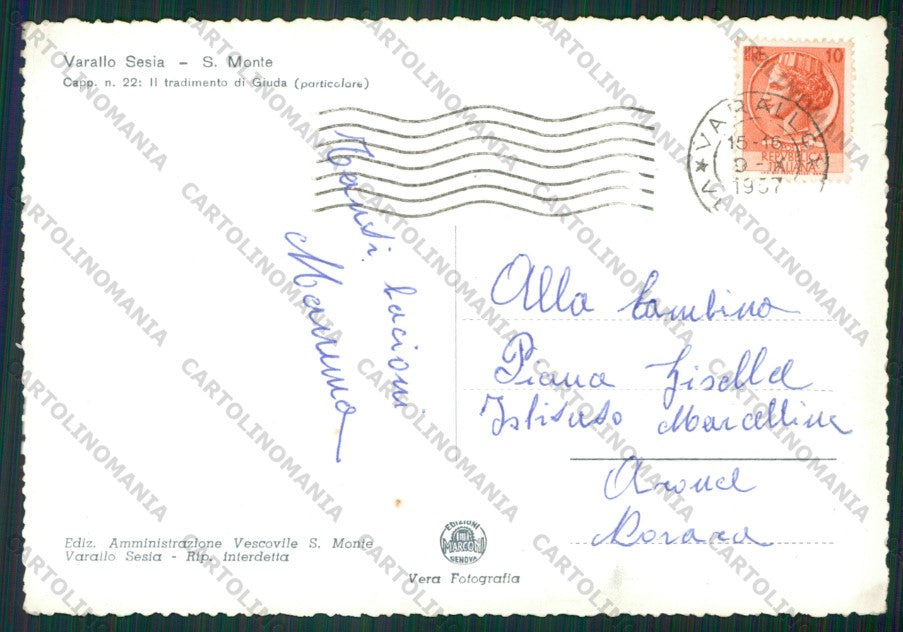 Varallo Sesia - S. Monte
Capp. n. 22: Il tradimento di Giuda (particolare)
LIRE 10
REPUBBLICA
ITALIANA
VARALLO
9 - IX
1957
Tanti bacioni
Mamma
Alla bambina
Piana Gisella
Istituto Marcelline
Arona
Novara
Ediz. Amministrazione Vescovile S. Monte
Varallo Sesia - Rip. interdetta
EDIZIONI
MARCONI
GENOVA
Vera Fotografia
CARTOLINOMANIA